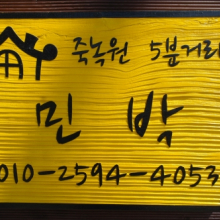 죽녹원 5분거리
민박
010-2594-4053